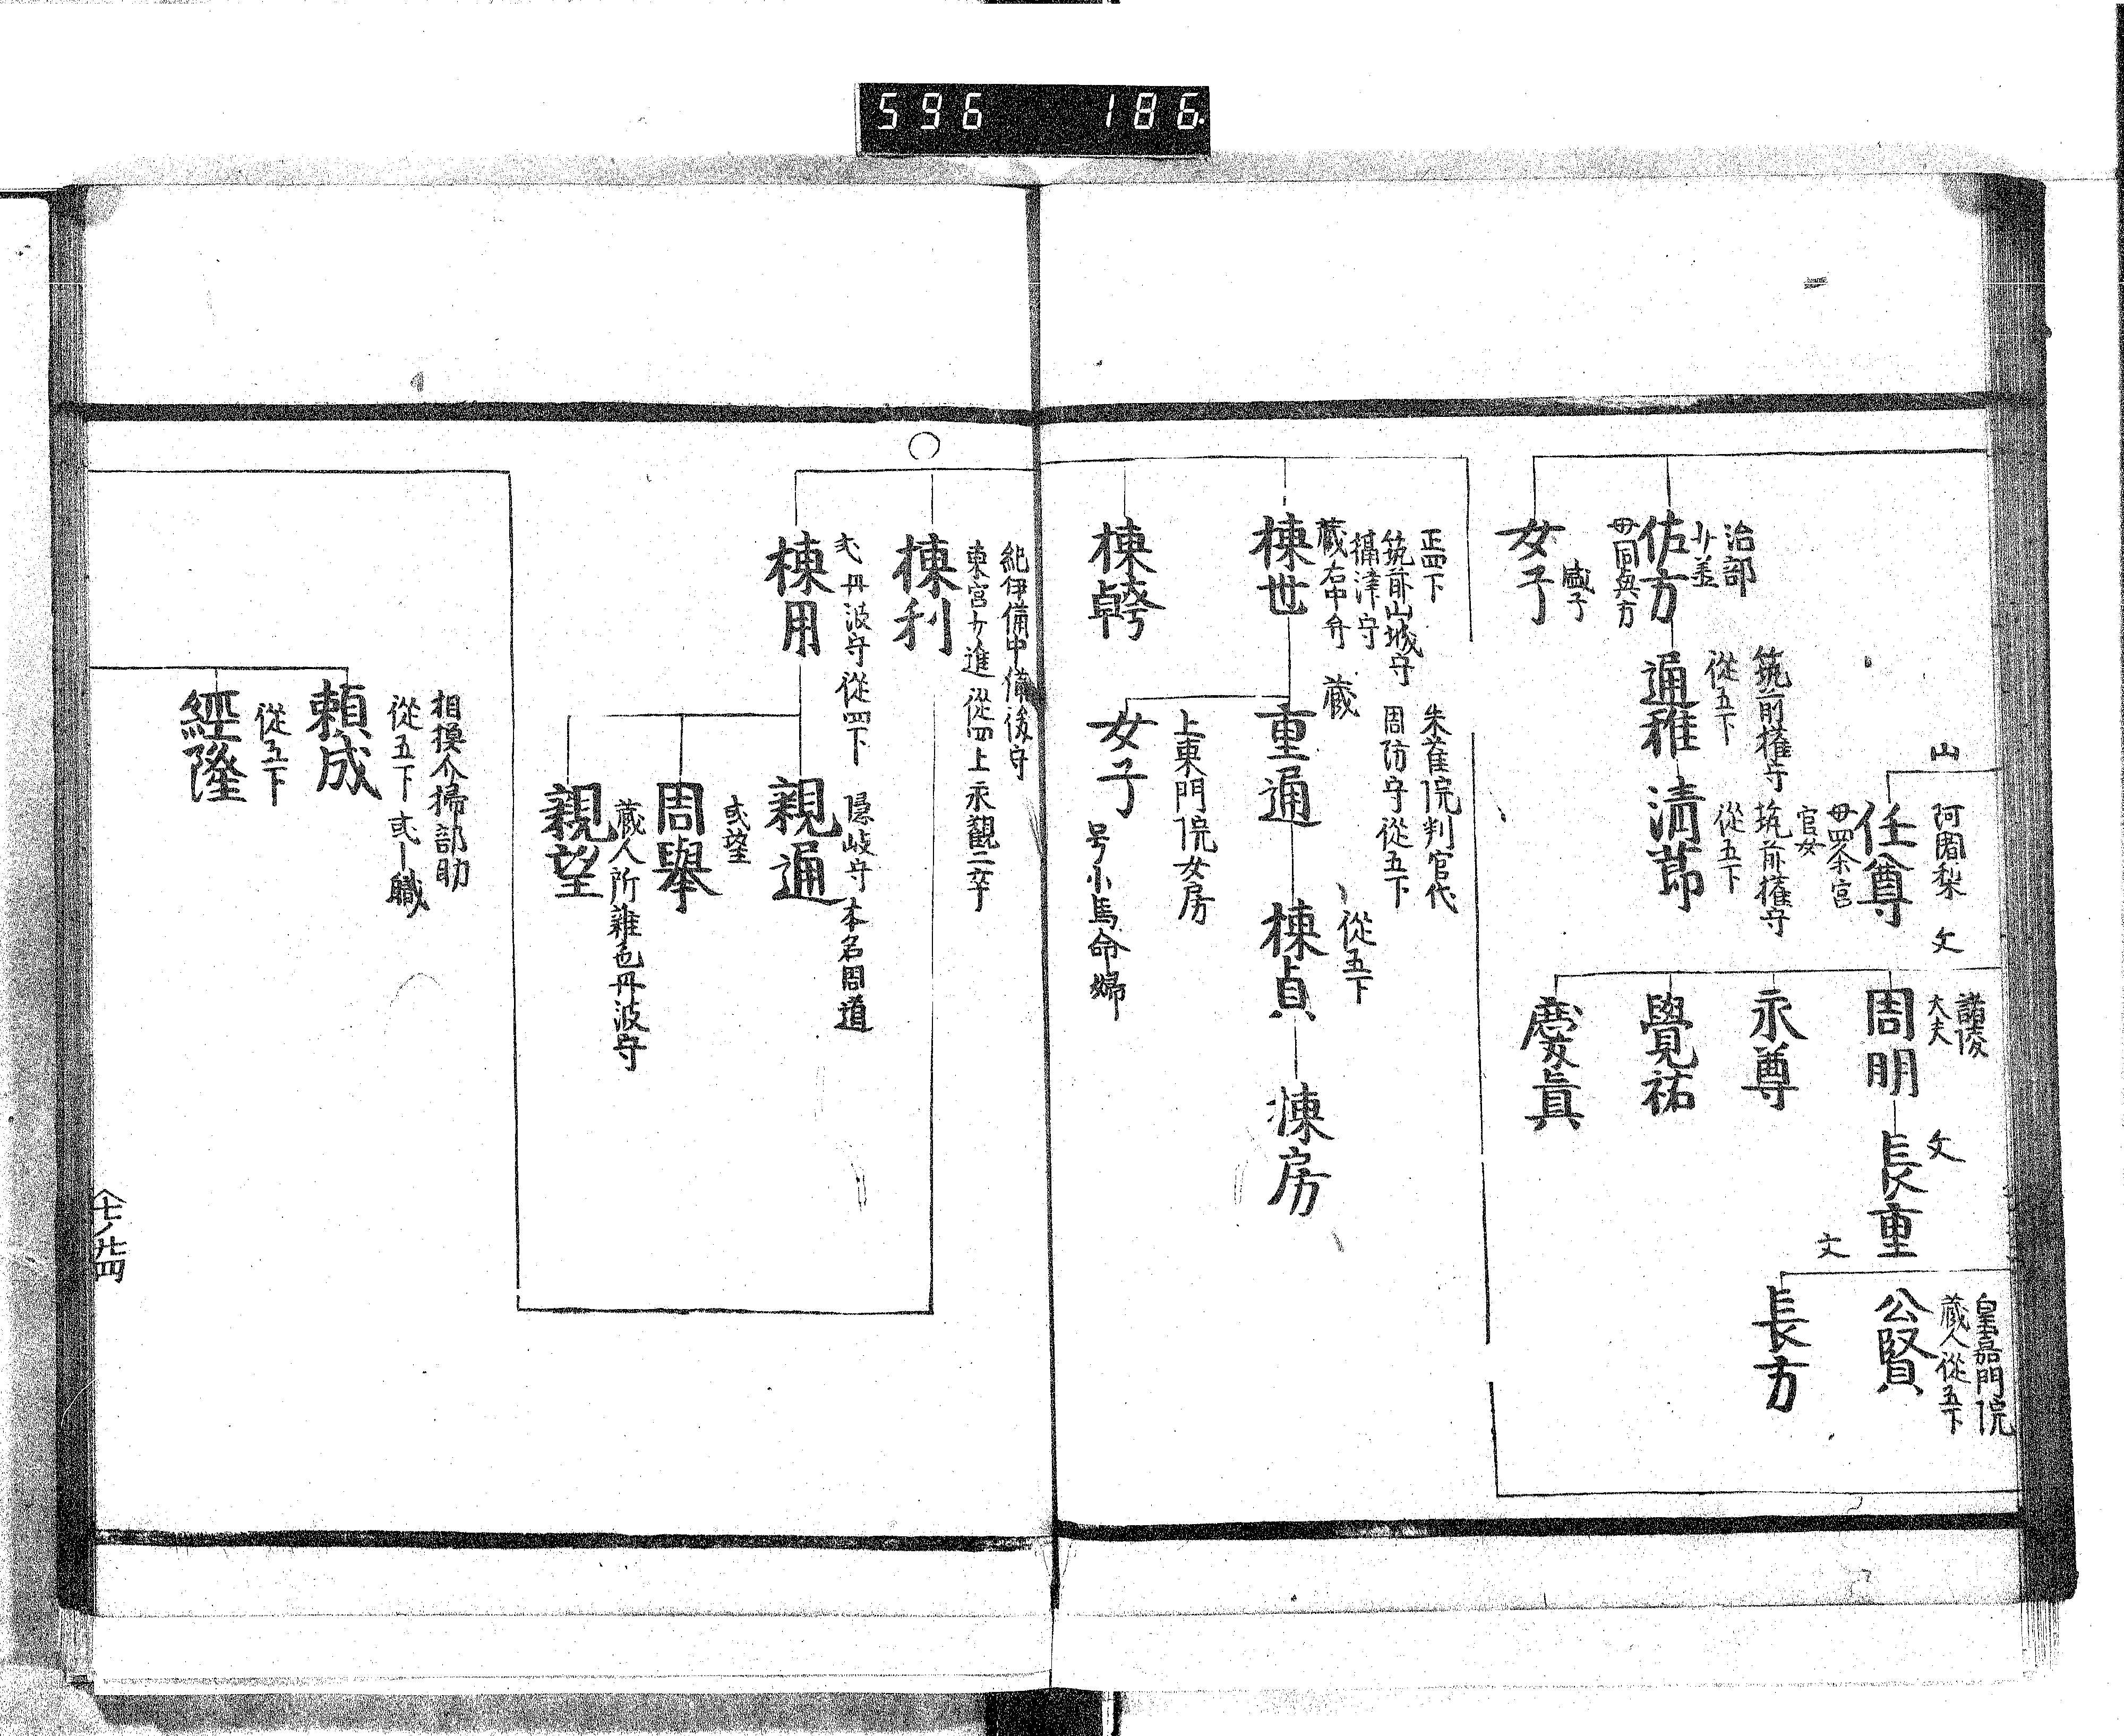 596 186
山
阿闍梨
任尊
母四条宮
官女
文
諸陵
大夫
周明
文
長重
皇嘉門院
蔵人従五下
公賢
文
長方
永尊
覺祐
慶眞
治部
少丞
佐方
母同兼方
筑前權守
從五下
通雅
筑前權守
從五下
清節
盛子
女子
正四下
筑前山城守
攝津守
蔵右中弁
棟世
蔵
朱雀院判官代
周防守從五下
重通
從五下
棟貞
棟房
上東門院女房
女子
号小馬命婦
紀伊備中備後守
東宮少進 從四上 永觀二卒
棟利
丹波守從四下
棟用
隠岐守 本名周道
親通
或望
周擧
蔵人所雜色丹波守
親望
相摸介掃部助
從五下 或職
頼成
從五下
經隆
七ノ廿四